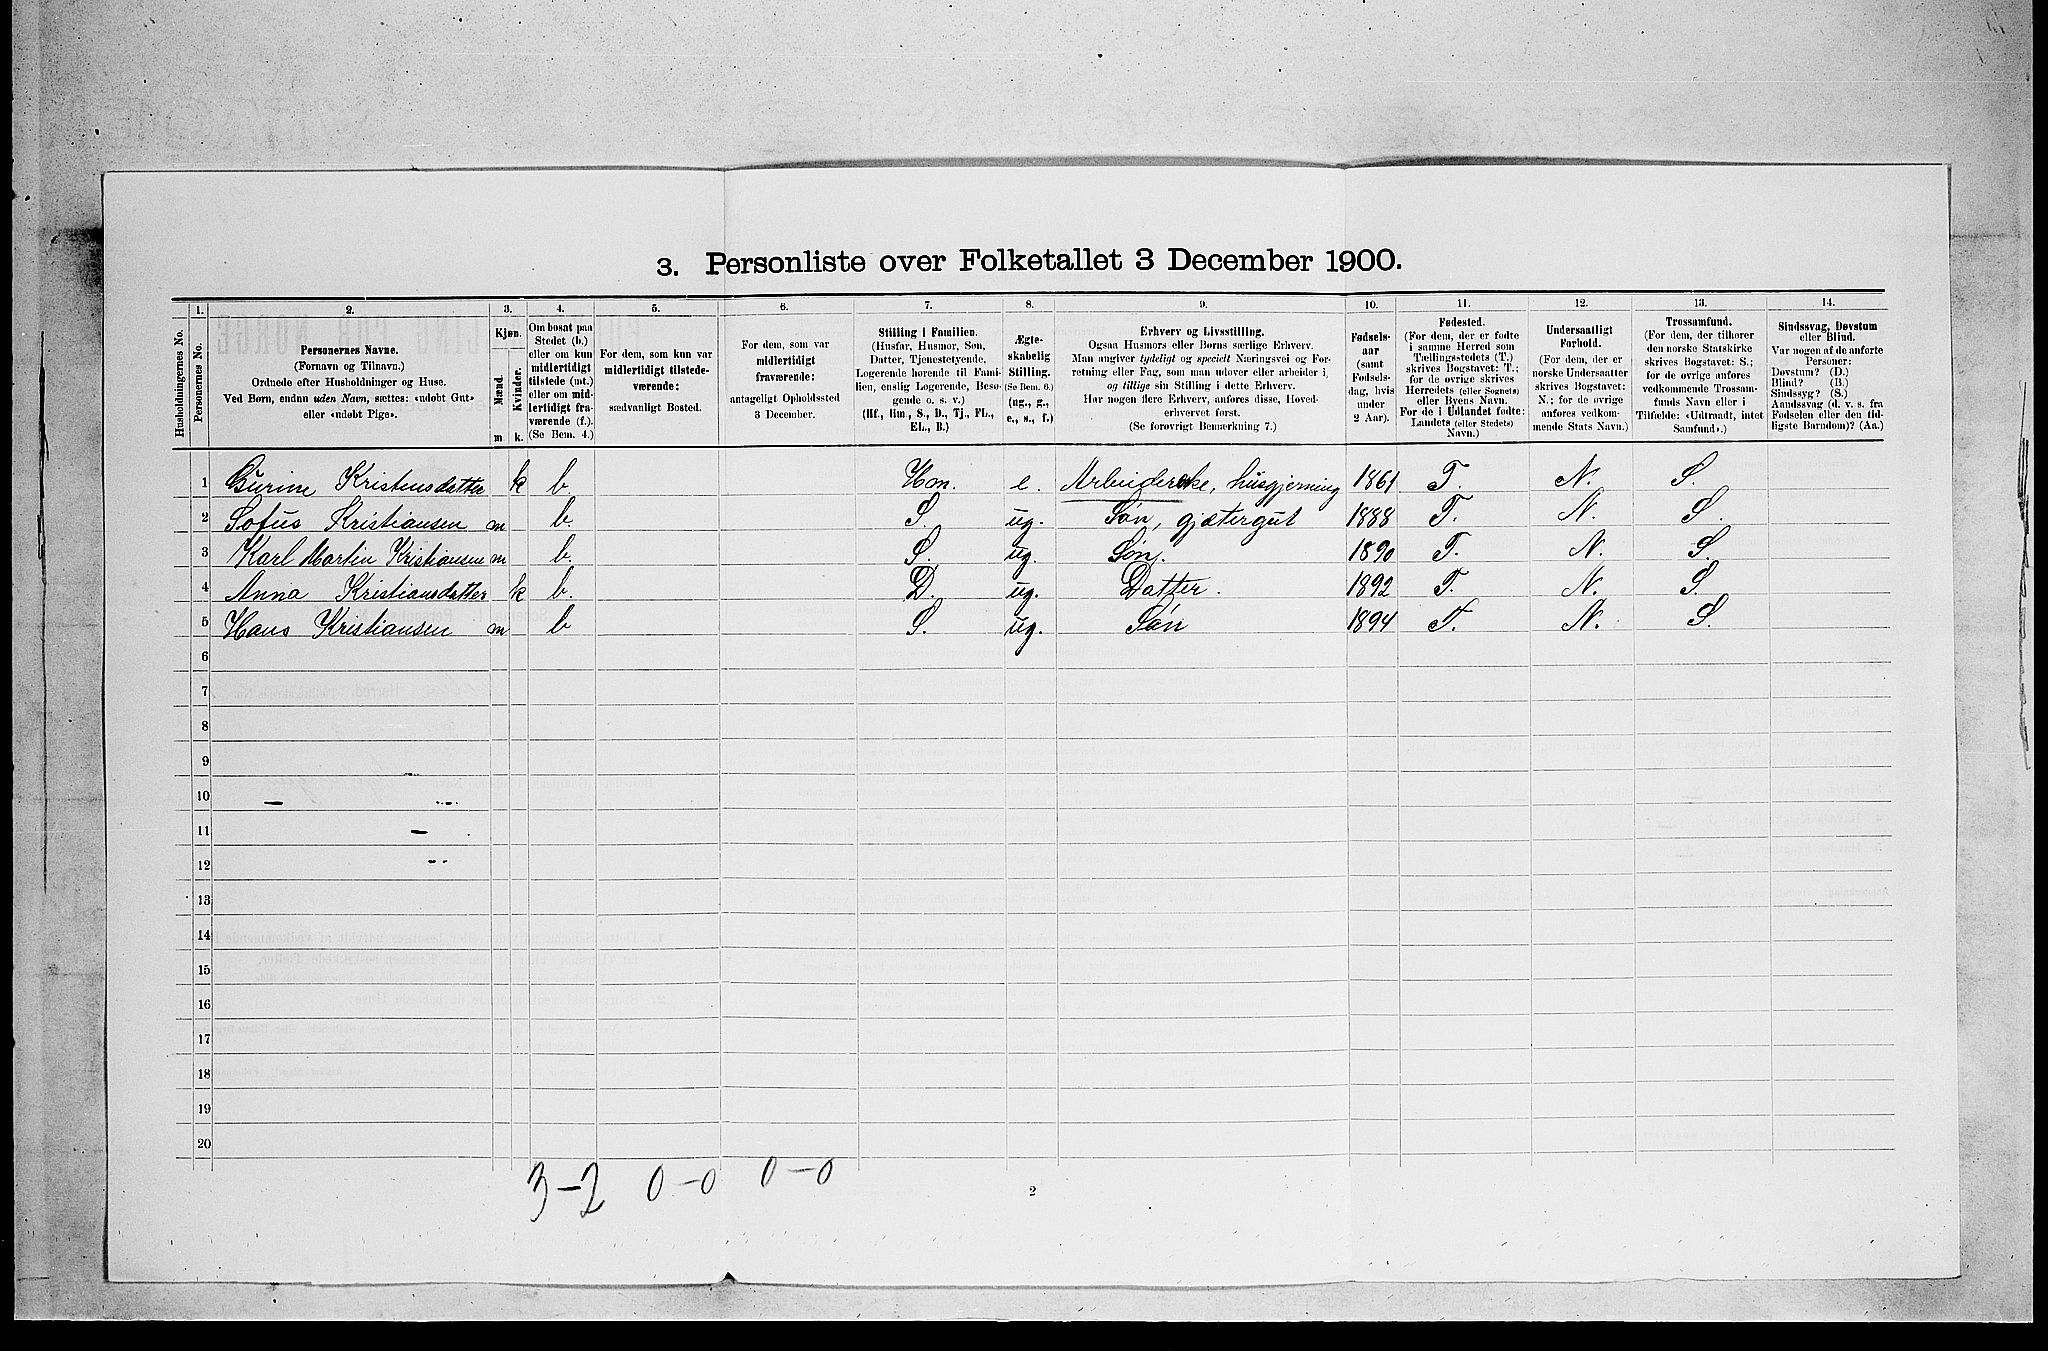 3. Personliste over Folketallet 3 December 1900.
1. 2. 3. 4. 5. 6. 7. 8. 9. 10. 11. 12. 13. 14.
Husholdningernes No.
Personernes No.
Personernes Navne.
(Fornavn og Tilnavn.)
Ordnede efter Husholdninger og Huse.
Ved Børn, endnu uden Navn, sættes: «udøbt Gut»
eller «udøbt Pige».
Kjøn.
Mænd.
Kvinder.
m k.
Om bosat paa
Stedet (b.)
eller om kun
midlertidigt
tilstede (mt.)
eller om mid-
lertidigt fra-
værende (f.).
(Se Bem. 4.)
For dem, som kun var
midlertidigt tilstede-
værende:
sædvanligt Bosted.
For dem, som var
midlertidigt
fraværende:
antageligt Opholdssted
3 December.
Stilling i Familien.
(Husfar, Husmor, Søn,
Datter, Tjenestetyende,
Logerende hørende til Fami-
lien, enslig Logerende, Besø-
gende o. s. v.)
(Hf., Hm., S., D., Tj., FL.,
EL., B.)
Ægte-
skabelig
Stilling.
(Se Bem. 6.)
(ug., g.,
e., s., f.)
Erhverv og Livsstilling.
Ogsaa Husmors eller Børns særlige Erhverv.
Man angiver tydeligt og specielt Næringsvei og For-
retning eller Fag, som man udøver eller arbeider i,
og tillige sin Stilling i dette Erhverv.
Har nogen flere Erhverv, anføres disse, Hoved-
erhvervet først.
(Se forøvrigt Bemærkning 7.)
Fødsels-
aar
(samt
Fødsels-
dag, hvis
under
2 Aar).
Fødested.
(For dem, der er fødte
i samme Herred som
Tællingsstedets (T.)
skrives Bogstavet: T.;
for de øvrige skrives
Herredets (eller Sognets)
eller Byens Navn.
For de i Udlandet fødte:
Landets (eller Stedets)
Navn.)
Undersaatligt
Forhold.
(For dem, der er
norske Undersaatter
skrives Bogstavet:
N.; for de øvrige
anføres vedkom-
mende Stats Navn.)
Trossamfund.
(For dem, der tilhører
den norske Statskirke
skrives Bogstavet: S.;
for de øvrige anføres
vedkommende Trossam-
funds Navn eller i
Tilfælde: «Udtraadt, intet
Samfund».)
Sindssvag, Døvstum
eller Blind.
Var nogen af de anførte
Personer:
Døvstum? (D.)
Blind? (B.)
Sindssyg? (S.)
Aandssvag (d. v. s. fra
Fødselen eller den tid-
ligste Barndom)? (Aa.)
1 Gurine Kristensdatter k b. Hm. e. Arbeiderske, husgjerning 1861 T. N. S.
2 Sofus Kristiansen m b. S. ug. Søn, gjætergut 1888 T. N. S.
3 Karl Martin Kristiansen m b. S. ug. Søn. 1890 T. N. S.
4 Anna Kristiansdatter k b. D. ug. Datter. 1892 T. N. S.
5 Hans Kristiansen m b S. ug. Søn 1894 T. N. S.
6
7
8
9
10
11
12
13
14
15
16
17
18
19
20
3-2 0-0 0-0
2